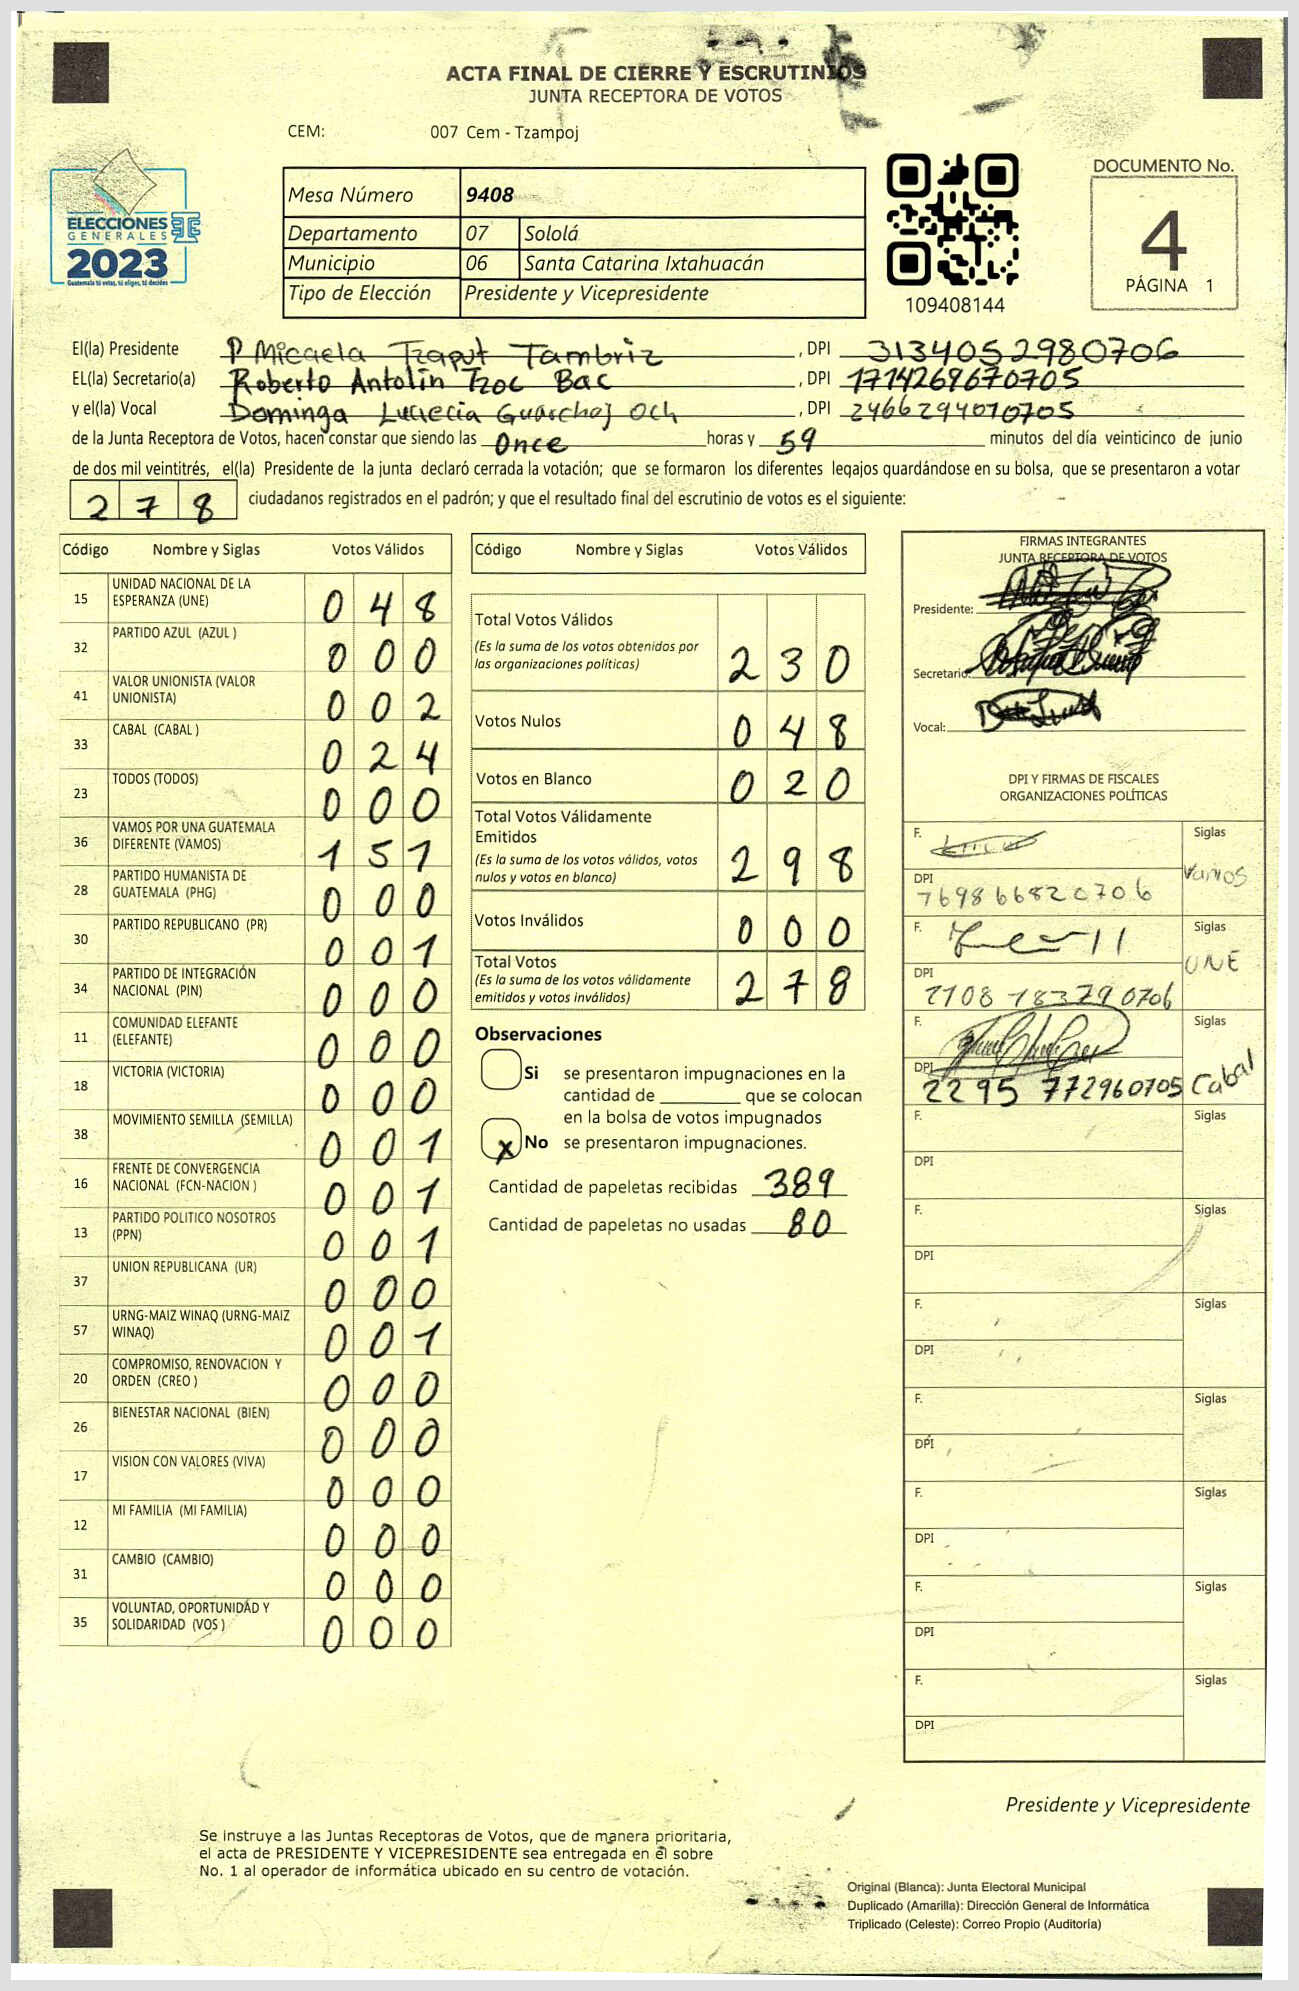 ACTA FINAL DE CIERRE Y ESCRUTINIOS
JUNTA RECEPTORA DE VOTOS
CEM: 007 Cem - Tzampoj
ELECCIONES
GENERALES
2023
Guatemala tú votas, tú eliges, tú decides
Mesa Número 9408
Departamento 07 Sololá
Municipio 06 Santa Catarina Ixtahuacán
Tipo de Elección Presidente y Vicepresidente
109408144
DOCUMENTO No.
4
PÁGINA 1
El(la) Presidente P Micaela Tzaput Tambriz , DPI 3134052980706
EL(la) Secretario(a) Roberto Antolín Tzoc Bac , DPI 1714269670705
y el(la) Vocal Dominga Lucrecia Guarchaj Och , DPI 2466294010705
de la Junta Receptora de Votos, hacen constar que siendo las Once horas y 59 minutos del día veinticinco de junio
de dos mil veintitrés, el(la) Presidente de la junta declaró cerrada la votación; que se formaron los diferentes legajos quardándose en su bolsa, que se presentaron a votar
278 ciudadanos registrados en el padrón; y que el resultado final del escrutinio de votos es el siguiente:
Código Nombre y Siglas Votos Válidos
15 UNIDAD NACIONAL DE LA ESPERANZA (UNE) 048
32 PARTIDO AZUL (AZUL ) 000
41 VALOR UNIONISTA (VALOR UNIONISTA) 002
33 CABAL (CABAL ) 024
23 TODOS (TODOS) 000
36 VAMOS POR UNA GUATEMALA DIFERENTE (VAMOS) 151
28 PARTIDO HUMANISTA DE GUATEMALA (PHG) 000
30 PARTIDO REPUBLICANO (PR) 001
34 PARTIDO DE INTEGRACIÓN NACIONAL (PIN) 000
11 COMUNIDAD ELEFANTE (ELEFANTE) 000
18 VICTORIA (VICTORIA) 000
38 MOVIMIENTO SEMILLA (SEMILLA) 001
16 FRENTE DE CONVERGENCIA NACIONAL (FCN-NACION ) 001
13 PARTIDO POLITICO NOSOTROS (PPN) 001
37 UNION REPUBLICANA (UR) 000
57 URNG-MAIZ WINAQ (URNG-MAIZ WINAQ) 001
20 COMPROMISO, RENOVACION Y ORDEN (CREO ) 000
26 BIENESTAR NACIONAL (BIEN) 000
17 VISION CON VALORES (VIVA) 000
12 MI FAMILIA (MI FAMILIA) 000
31 CAMBIO (CAMBIO) 000
35 VOLUNTAD, OPORTUNIDAD Y SOLIDARIDAD (VOS ) 000
Código Nombre y Siglas Votos Válidos
Total Votos Válidos 230
(Es la suma de los votos obtenidos por
las organizaciones políticas)
Votos Nulos 048
Votos en Blanco 020
Total Votos Válidamente
Emitidos 298
(Es la suma de los votos válidos, votos
nulos y votos en blanco)
Votos Inválidos 000
Total Votos 278
(Es la suma de los votos válidamente
emitidos y votos inválidos)
Observaciones
Si se presentaron impugnaciones en la
cantidad de ________ que se colocan
en la bolsa de votos impugnados
X No se presentaron impugnaciones.
Cantidad de papeletas recibidas 389
Cantidad de papeletas no usadas 80
FIRMAS INTEGRANTES
JUNTA RECEPTORA DE VOTOS
Presidente:
Secretario:
Vocal:
DPI Y FIRMAS DE FISCALES
ORGANIZACIONES POLÍTICAS
F. Siglas
Vamos
DPI 769866820706
F. Siglas
UNE
DPI 2108 18379 0706
F. Siglas
Cabal
DPI 2295 772960705
F. Siglas
DPI
F. Siglas
DPI
F. Siglas
DPI
F. Siglas
DPI
F. Siglas
DPI
F. Siglas
DPI
F. Siglas
DPI
Presidente y Vicepresidente
Se instruye a las Juntas Receptoras de Votos, que de manera prioritaria,
el acta de PRESIDENTE Y VICEPRESIDENTE sea entregada en el sobre
No. 1 al operador de informática ubicado en su centro de votación.
Original (Blanca): Junta Electoral Municipal
Duplicado (Amarilla): Dirección General de Informática
Triplicado (Celeste): Correo Propio (Auditoría)